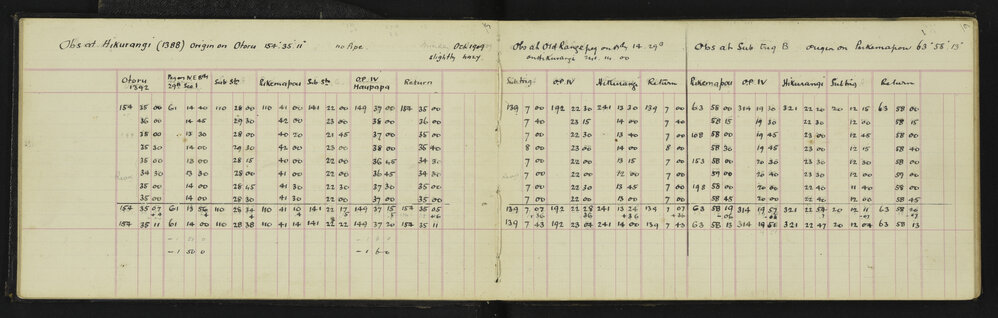 Obs at Hikurangi (1388) origin on Otoru 154° 35' 11" no Pipe Oct 1909
slightly hazy.
Otoru 1392 Peg on N.E Bdy 29a Sec 1 Sub Stn Pukemapou Sub Stn O.P. IV Haupapa Return
154 35 00 61 14 40 110 28 00 110 41 00 141 22 00 149 37 00 154 35 00
36 00 14 45 29 30 42 00 23 00 38 00 36 00
35 00 13 30 28 00 40 20 21 45 37 00 35 00
35 30 14 00 29 30 42 00 23 00 38 00 35 40
35 00 13 00 28 15 40 00 22 00 36 45 34 30
34 30 13 30 28 00 41 00 22 00 36 45 34 30
35 00 14 00 28 45 41 30 22 30 37 30 35 00
35 00 14 00 28 30 41 30 22 30 37 00 35 00
154 35 07 61 13 56 110 28 34 110 41 10 141 22 17 149 37 15 154 35 05
154 35 11 61 14 00 110 28 38 110 41 14 141 22 22 149 37 20 154 35 11
Obs at Old Range peg on
on Hikurangi 241. 14 00
Sub trig O.P. IV Hikurangi Return
139 7 00 192 22 30 241 13 30 139 7 00
7 40 23 15 14 00 7 40
7 00 22 30 13 40 7 00
8 00 23 00 14 00 8 00
7 00 22 00 13 15 7 00
7 00 22 00 12 00 7 00
7 00 22 30 13 45 7 00
7 00 22 00 13 00 7 00
139 7 07 192 22 28 241 13 24 139 7 07
+36 36 +36 +36
139 7 43 192 23 04 241 14 00 139 7 43
Obs at Sub Trig B origin on Pukemapou 63° 58' 13"
Pukemapou O.P. IV Hikurangi Sub trig Return
63 58 00 314 19 30 321 22 20 20 12 15 63 58 00
58 15 19 30 22 30 12 00 58 15
108 58 00 19 45 23 00 12 45 58 00
58 30 19 45 23 00 12 15 58 40
153 58 00 20 30 23 30 12 30 58 00
59 00 20 40 23 30 12 00 59 00
198 58 00 20 00 22 40 11 40 58 00
58 45 20 00 22 40 12 00 58 45
63 58 19 314 19 57 321 22 54 20 12 11 63 58 20
63 58 13 314 19 51 321 22 47 20 12 04 63 58 13